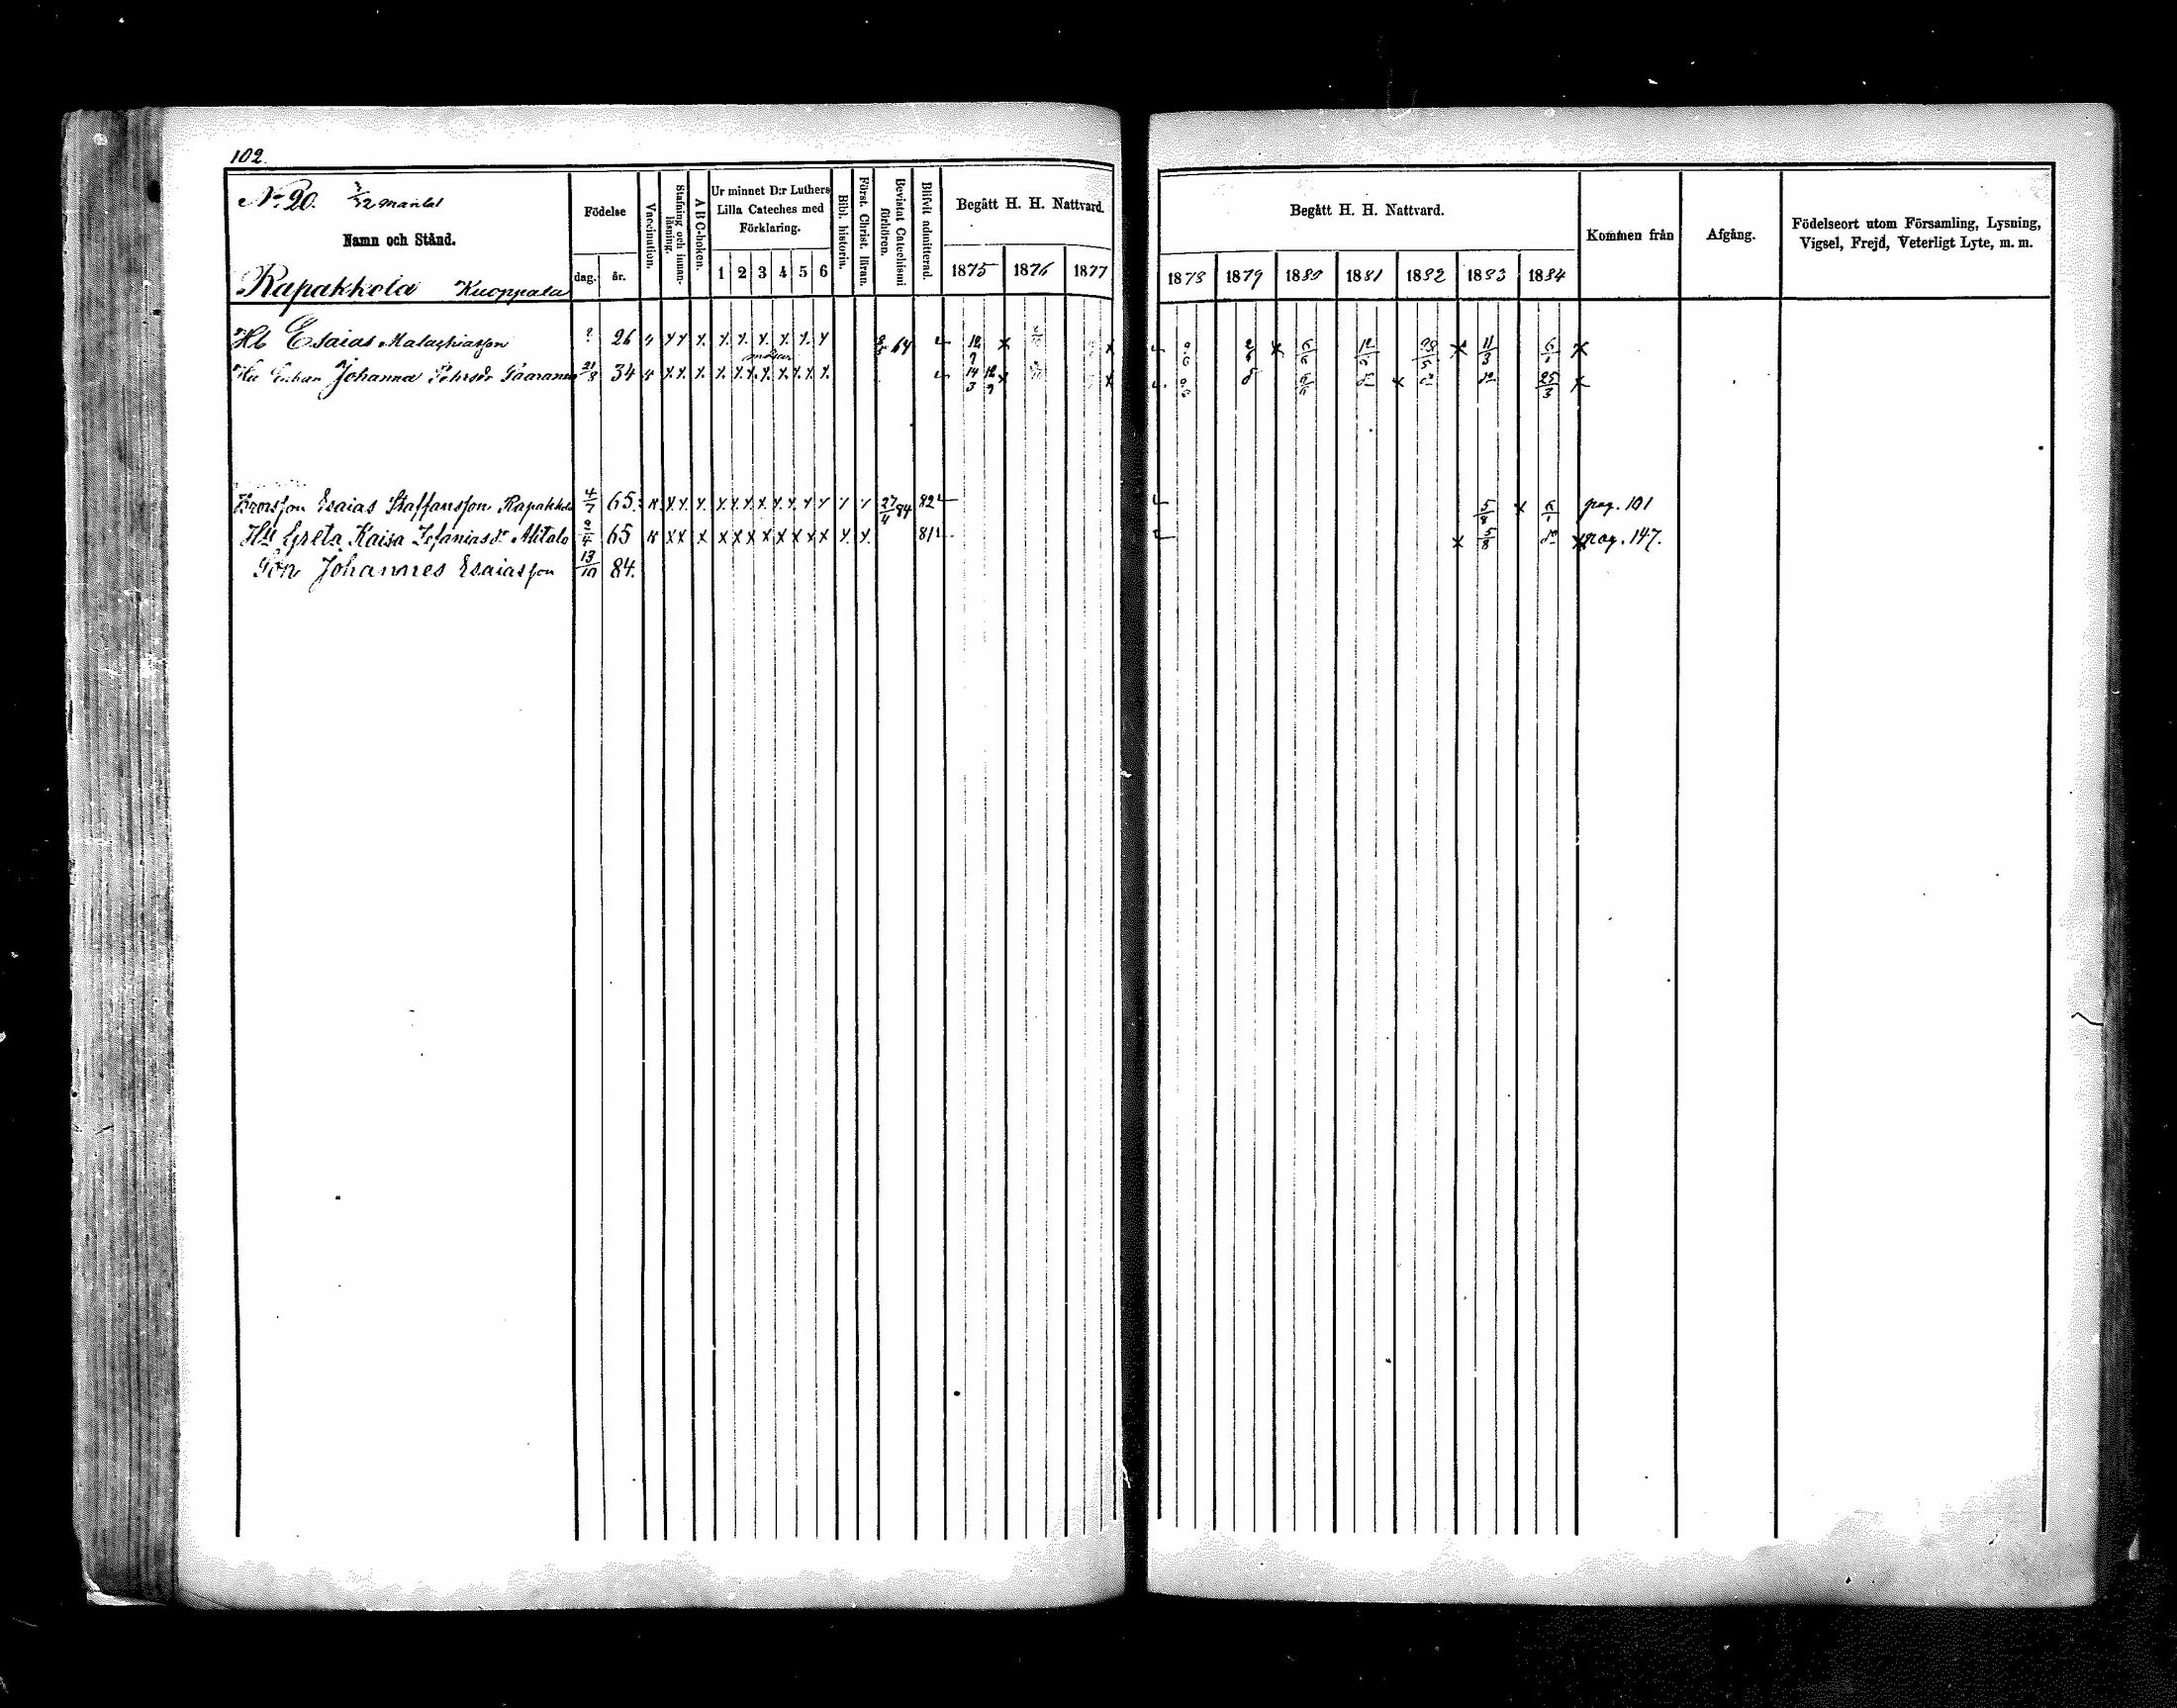 102.
No 20. mantal
Namn och Stånd.
Rapakkola Kuoppala
Födelse
dag. år.
Vaccination.
Stafning och innan-läsning.
A B C-boken.
Ur minnet D:r Luthers
Lilla Cateches med
Förklaring.
1 2 3 4 5 6
Bibl. historia.
Först. Christ. läran.
Bevistat Catechismi förhören.
Blifvit admitterad.
Begått H. H. Nattvard.
1875 1876 1877
Begått H. H. Nattvard.
1878 1879 1880 1881 1882 1883 1884
Kommen från
Afgång.
Födelseort utom Församling, Lysning,
Vigsel, Frejd, Veterligt Lyte, m. m.
Hb Esaias Malachiasson ? 26 x x x x x x x x x x 64 12/9 x 2/6 x 12 11/3 x 6/1 x
Hu Johanna Pehrsdr 21/8 34 x x x x x x x x x x 14/3 12/9 x do 25/3 x
Brorsson Esaias Staffansson Rapakkola 4/7 65. x x x x x x x x x x 27/4 84 82 5/8 x 6/1 pag. 101
Hu Greta Kaisa Zefaniasdr Alitalo 2/4 65 x x x x x x x x x x x x 81 x 5/8 do x pag. 147.
Son Johannes Esaiasson 13/10 84.